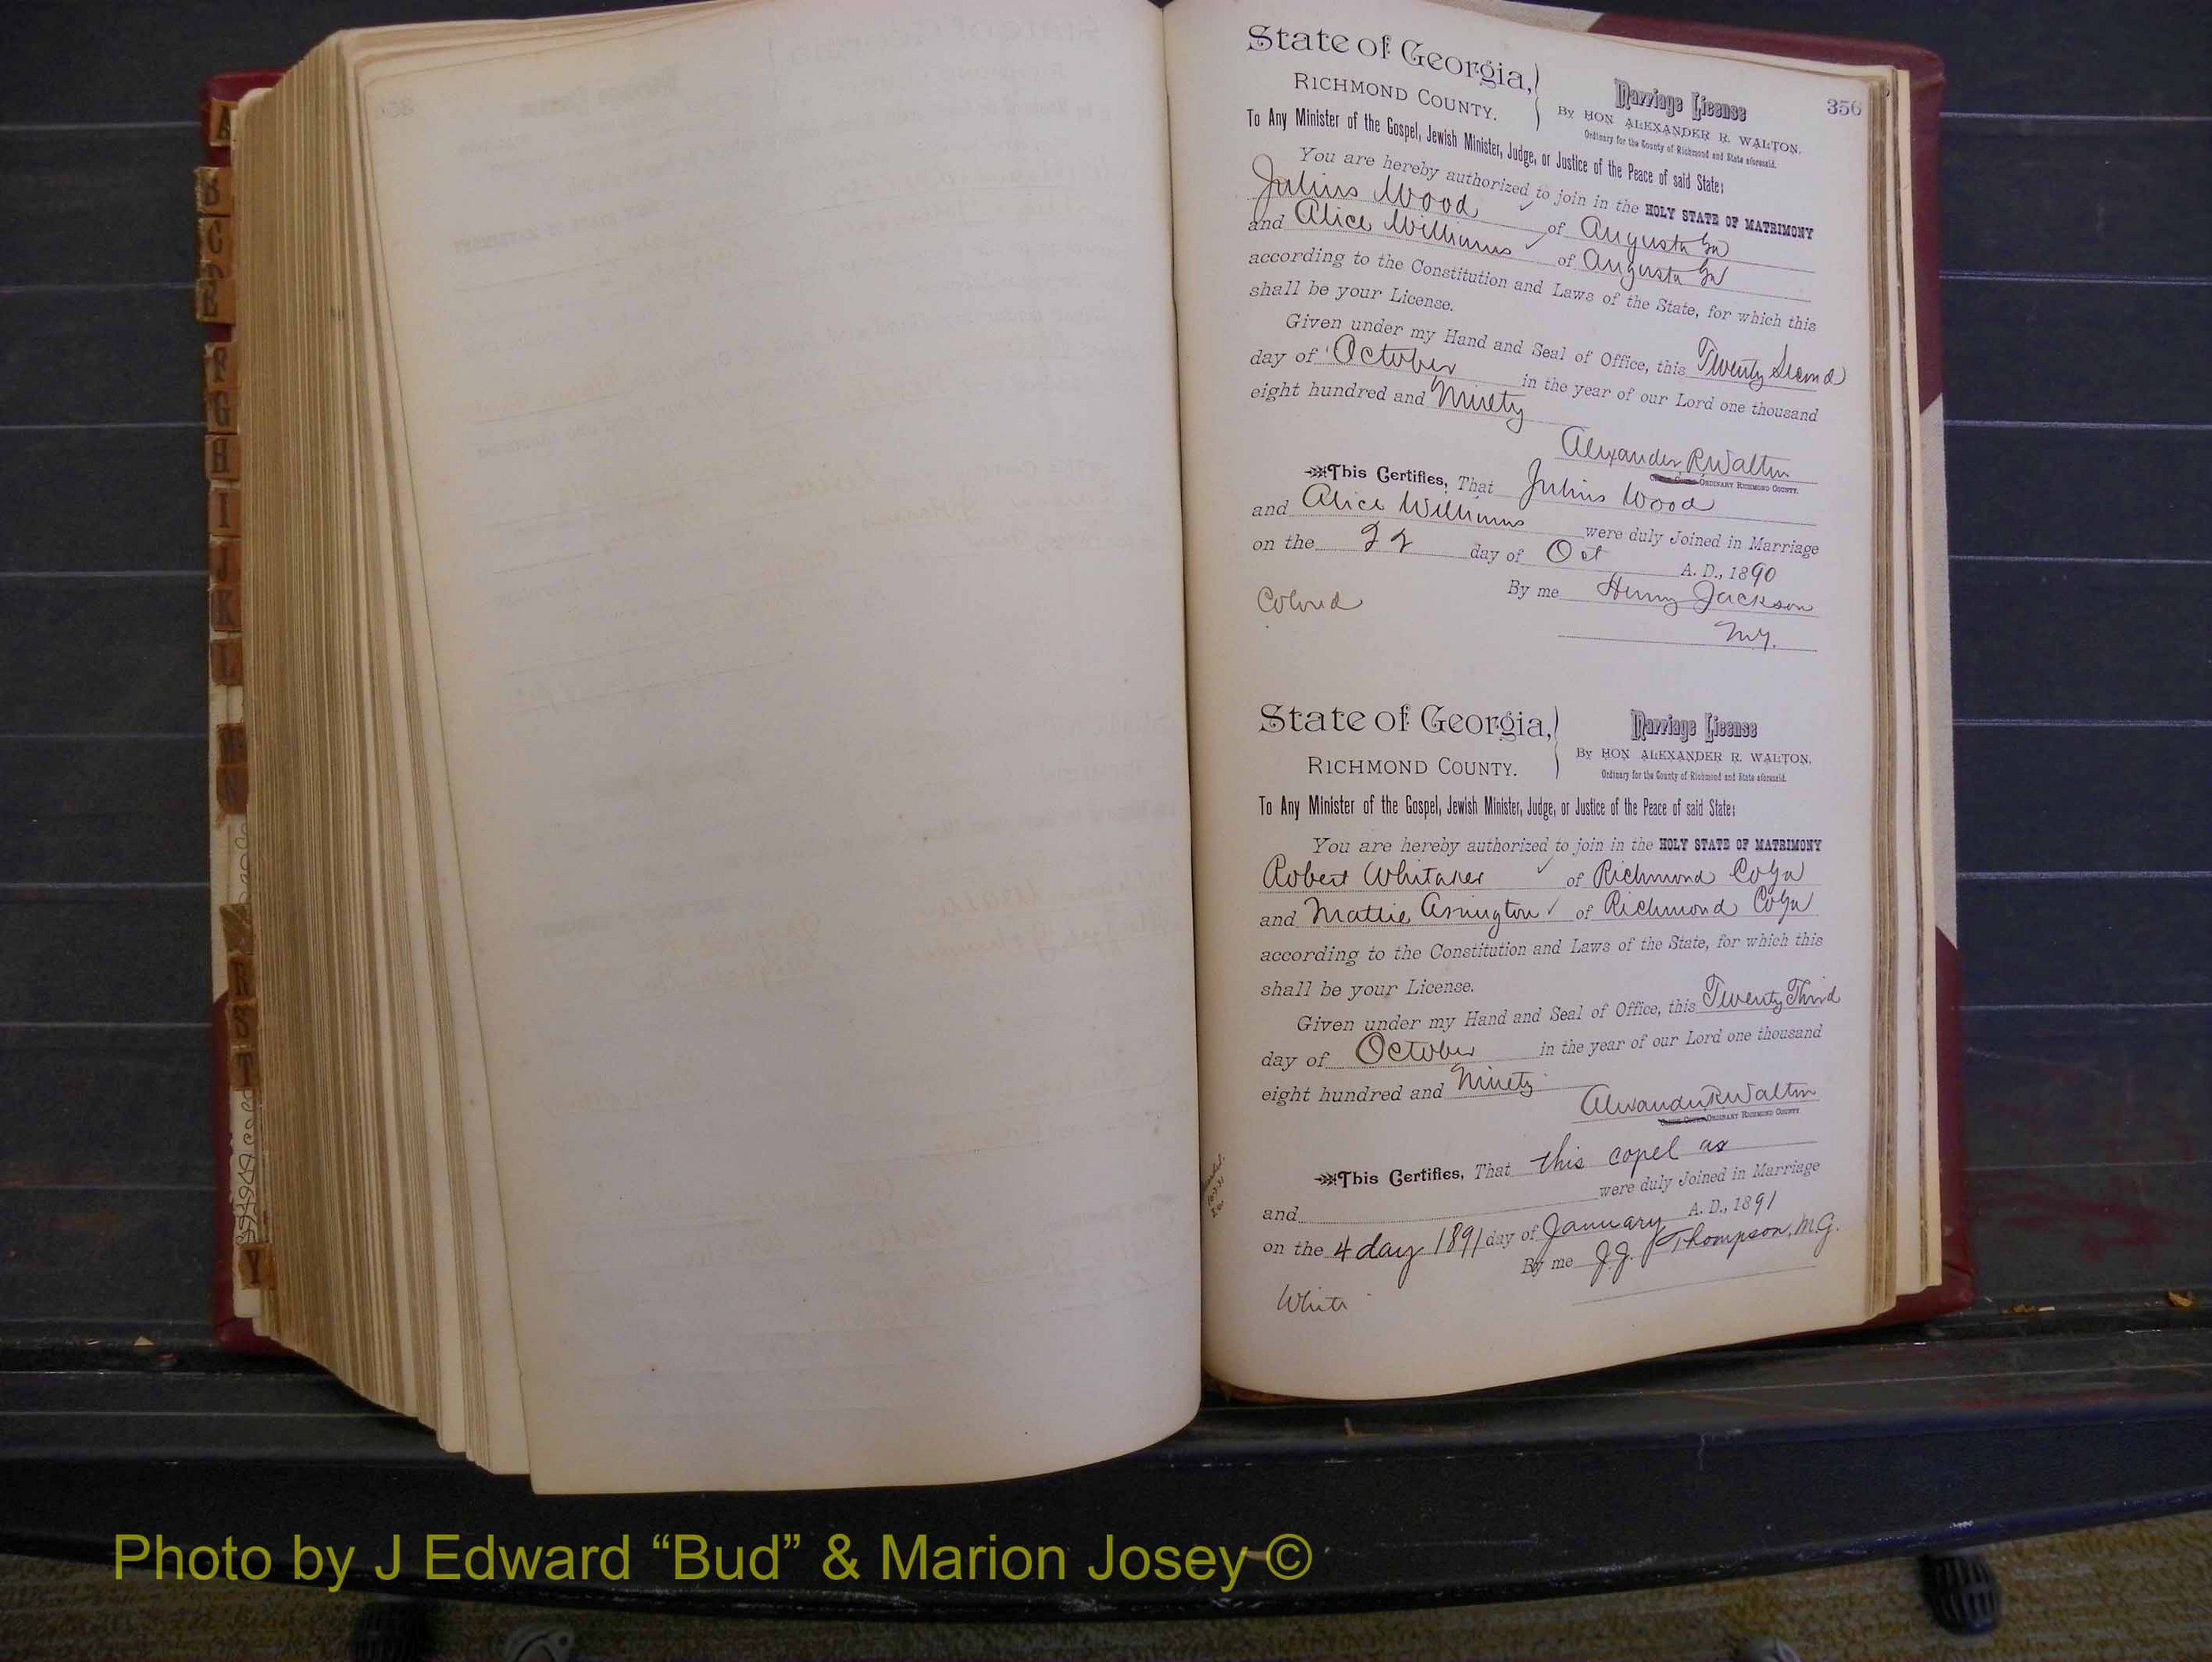 356
State of Georgia,
RICHMOND COUNTY.
Marriage License
By HON. ALEXANDER R. WALTON,
Ordinary for the County of Richmond and State aforesaid.
To Any Minister of the Gospel, Jewish Minister, Judge, or Justice of the Peace of said State:
You are hereby authorized to join in the HOLY STATE OF MATRIMONY
Julius Wood of Augusta Ga
and Alice Williams of Augusta Ga
according to the Constitution and Laws of the State, for which this
shall be your License.
Given under my Hand and Seal of Office, this Twenty Second
day of October in the year of our Lord one thousand
eight hundred and Ninety
Alexander R Walton
ORDINARY RICHMOND COUNTY.
This Certifies, That Julius Wood
and Alice Williams were duly Joined in Marriage
on the 22 day of Oct A. D., 1890
By me Henry Jackson
Colored
M.G.
State of Georgia,
RICHMOND COUNTY.
Marriage License
By HON. ALEXANDER R. WALTON,
Ordinary for the County of Richmond and State aforesaid.
To Any Minister of the Gospel, Jewish Minister, Judge, or Justice of the Peace of said State:
You are hereby authorized to join in the HOLY STATE OF MATRIMONY
Robert Whitaker of Richmond Co Ga
and Mattie Arrington of Richmond Co Ga
according to the Constitution and Laws of the State, for which this
shall be your License.
Given under my Hand and Seal of Office, this Twenty Third
day of October in the year of our Lord one thousand
eight hundred and Ninety
Alexander R Walton
ORDINARY RICHMOND COUNTY.
This Certifies, That this copel as
and were duly Joined in Marriage
on the 4 day 1891 day of January A. D., 1891
By me J.J. Thompson, M.G.
White
A
B
C
G
H
I
J
K
L
N
R
S
T
Y
Photo by J Edward “Bud” & Marion Josey ©